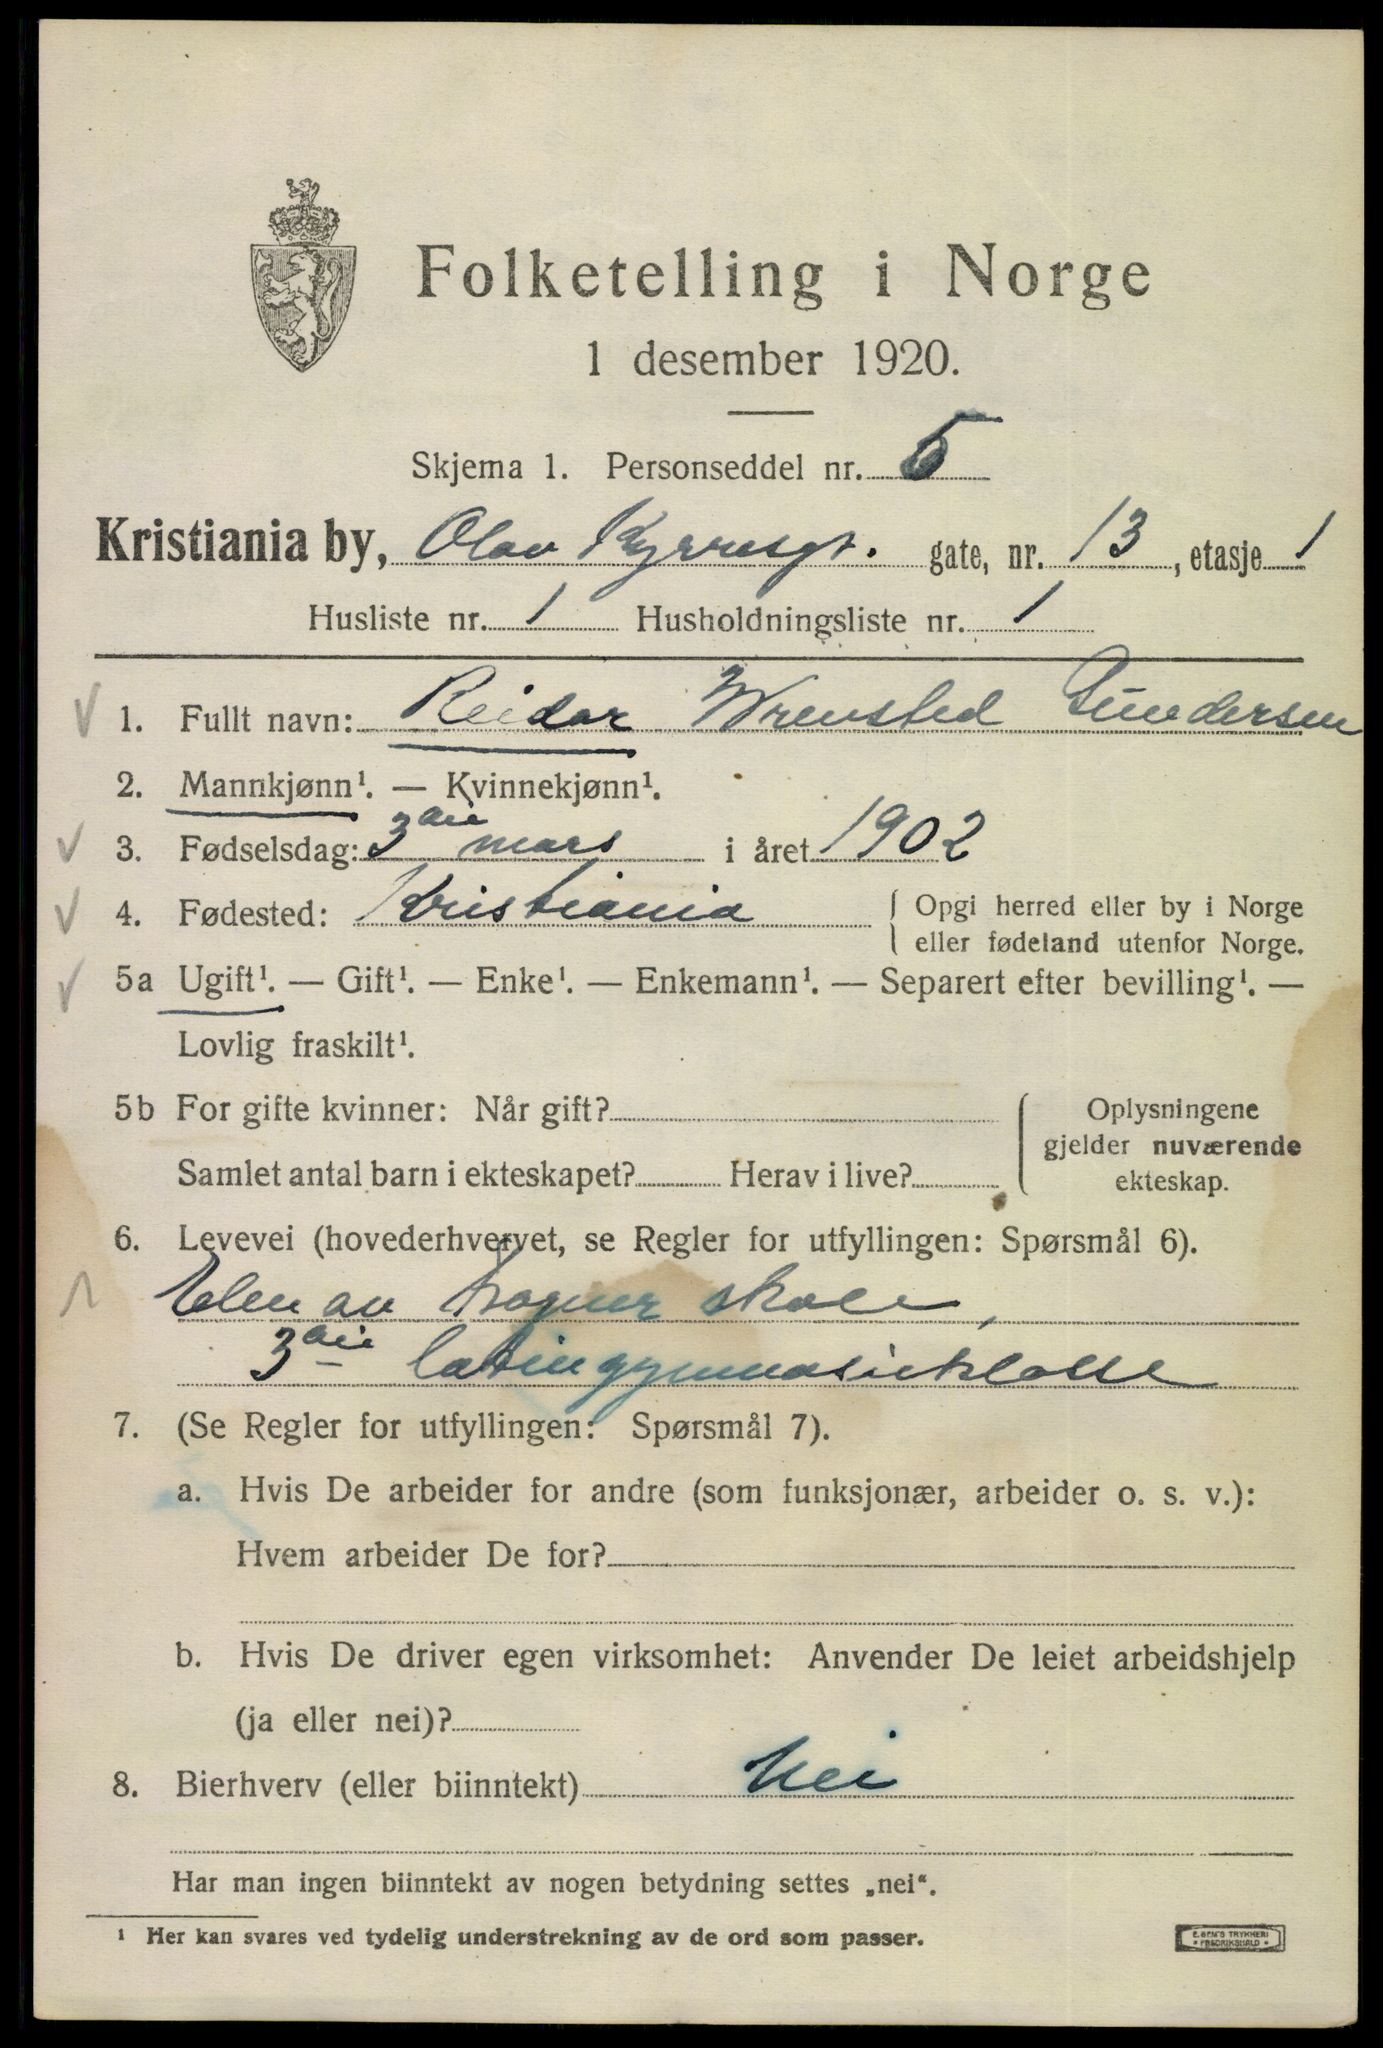 Folketelling i Norge
1 desember 1920.
Skjema 1. Personseddel nr. 5
Kristiania by, Olav Kyrresgt. gate, nr. 13, etasje 1
Husliste nr. 1 Husholdningsliste nr. 1
1. Fullt navn: Reidar Wrensted Gundersen
2. Mannkjønn¹. — Kvinnekjønn¹.
3. Fødselsdag: 3die mars i året 1902
4. Fødested: Kristiania { Opgi herred eller by i Norge
eller fødeland utenfor Norge.
5a Ugift¹. — Gift¹. — Enke¹. — Enkemann¹. — Separert efter bevilling¹. —
Lovlig fraskilt¹.
5b For gifte kvinner: Når gift?
Samlet antal barn i ekteskapet? Herav i live?
Oplysningene
gjelder nuværende
ekteskap.
6. Levevei (hovederhvervet, se Regler for utfyllingen: Spørsmål 6).
Elev av Frogner skole,
3die latingymnasieklasse
7. (Se Regler for utfyllingen: Spørsmål 7).
a. Hvis De arbeider for andre (som funksjonær, arbeider o. s. v.):
Hvem arbeider De for?
b. Hvis De driver egen virksomhet: Anvender De leiet arbeidshjelp
(ja eller nei)?
8. Bierhverv (eller biinntekt) Nei
Har man ingen biinntekt av nogen betydning settes „nei“.
¹ Her kan svares ved tydelig understrekning av de ord som passer.
E. SEM'S TRYKKERI
* FREDRIKSHALD *